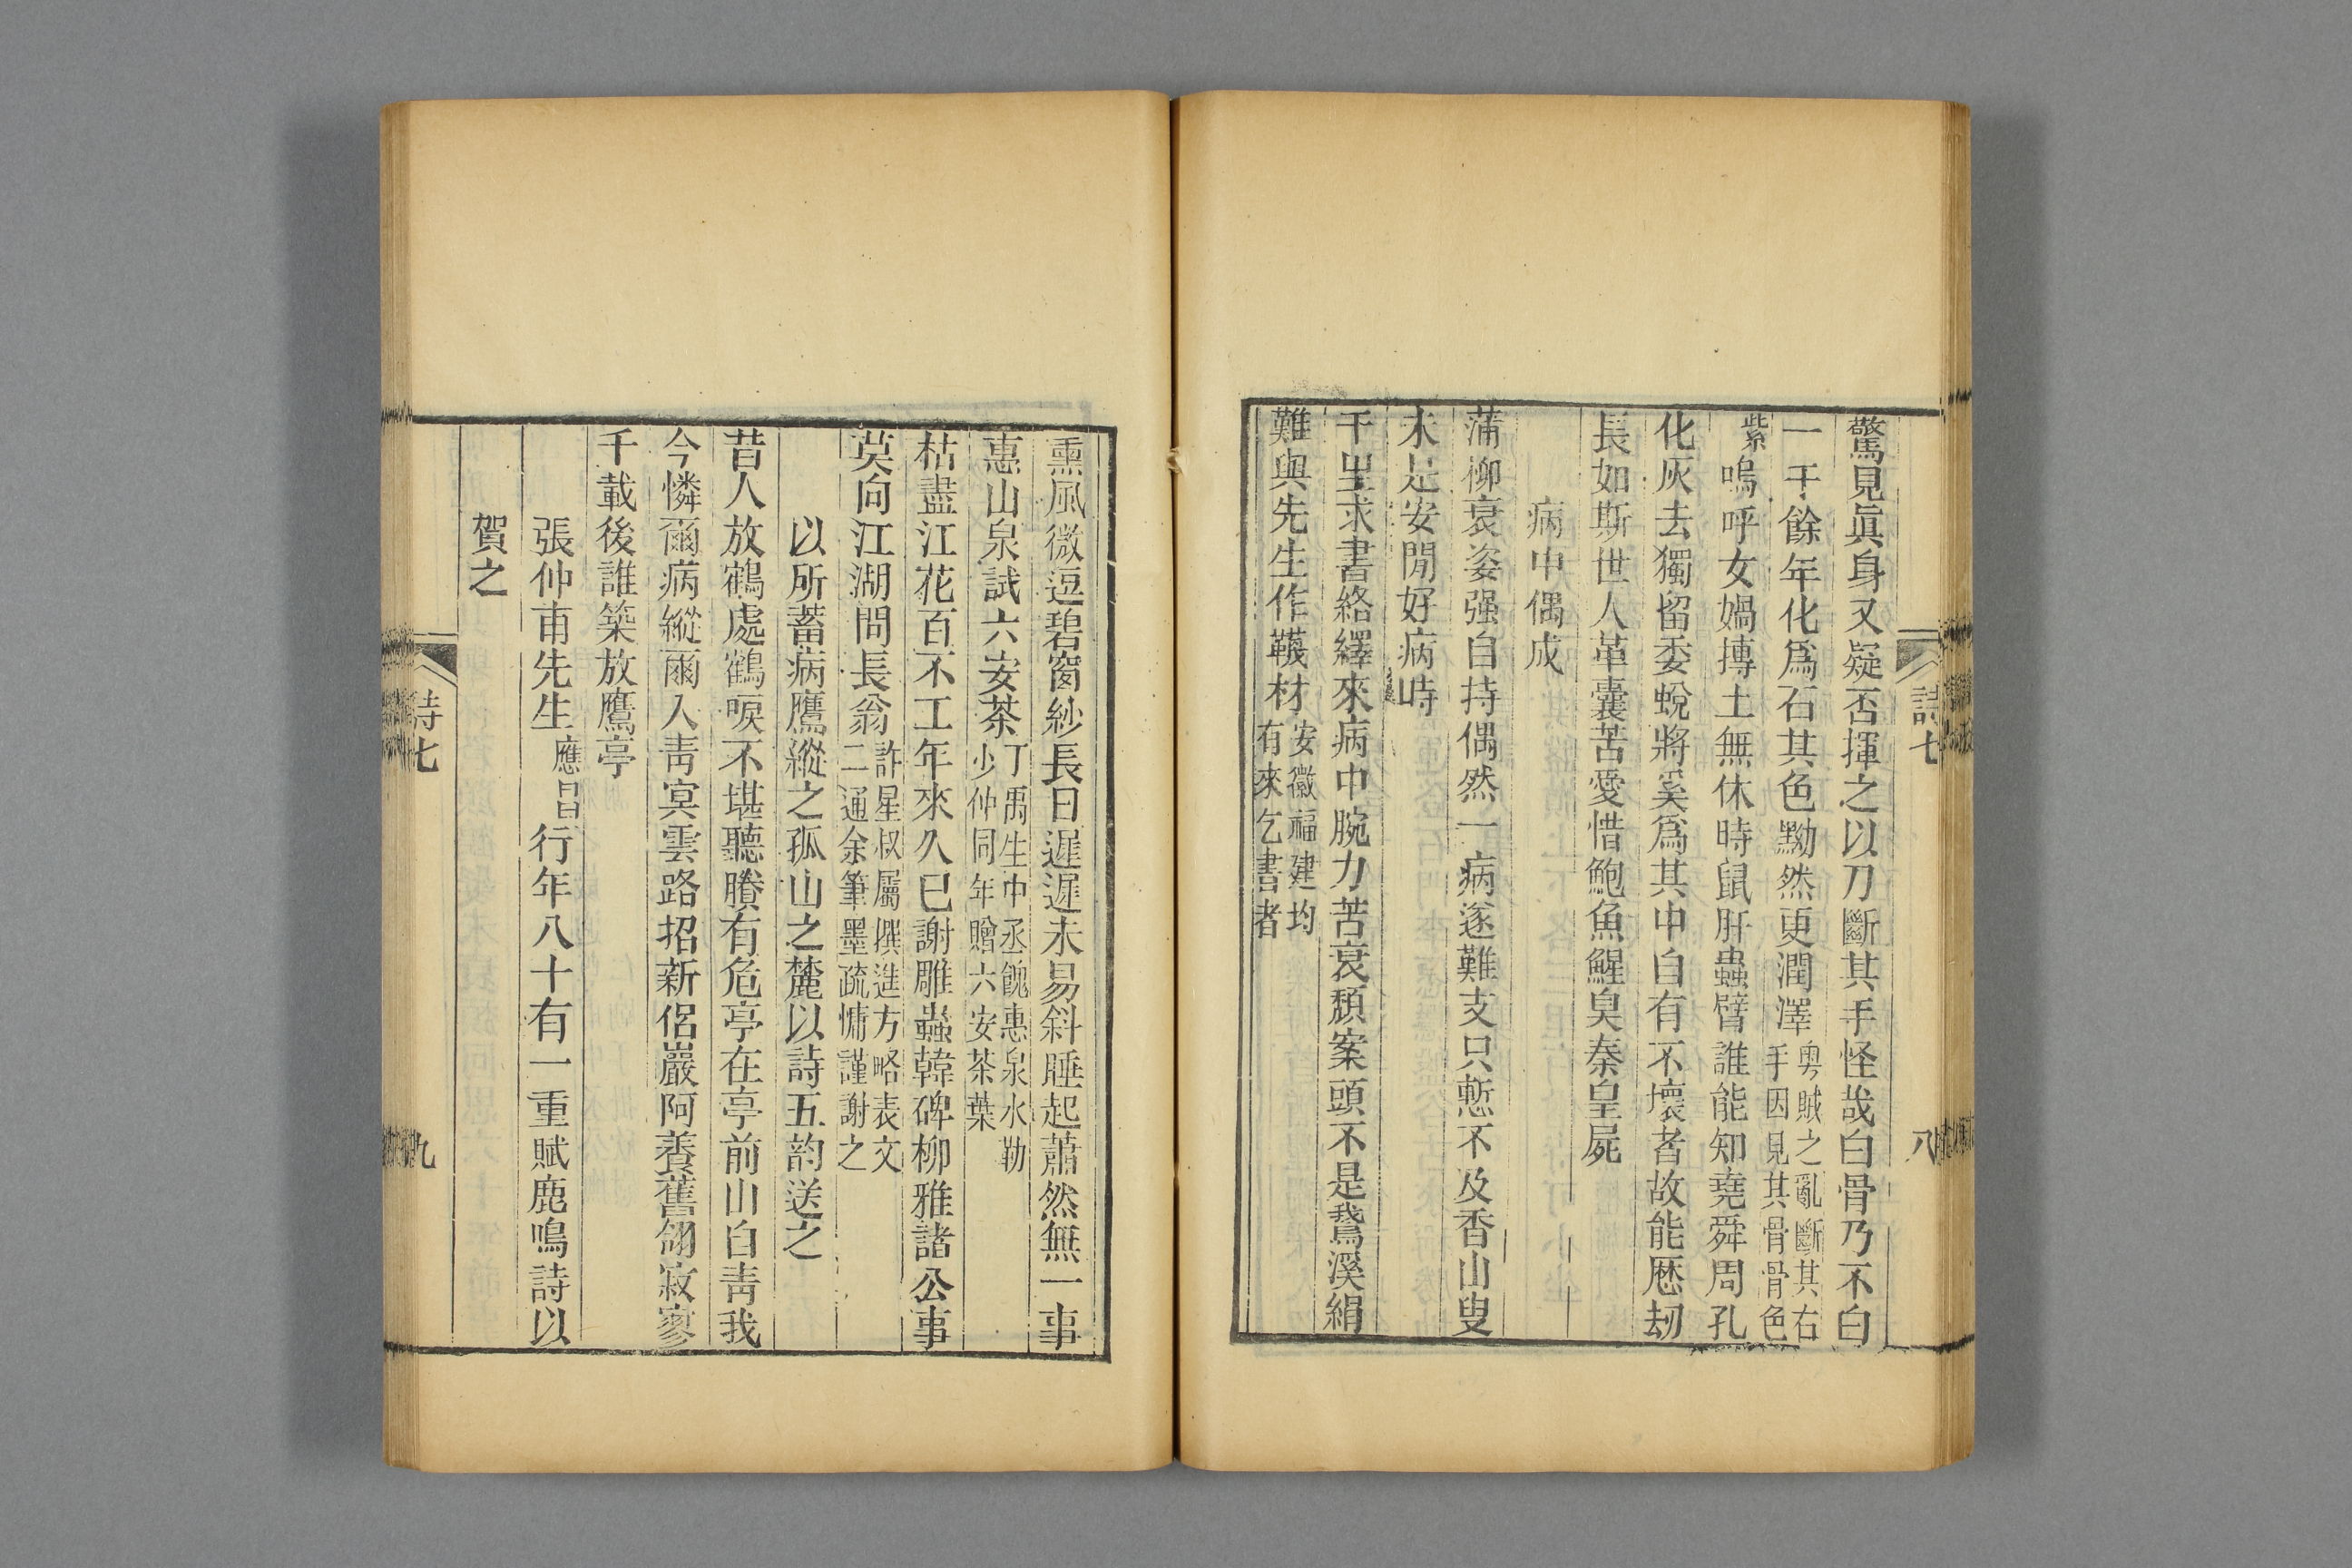 詩七
八
驚見眞身又疑否揮之以刀斷其手怪哉白骨乃不白
一千餘年化爲石其色黝然更潤澤粤賊之亂斷其右手因見其骨骨色
紫嗚呼女媧摶土無休時鼠肝蟲臂誰能知堯舜周孔
化灰去獨留委蛻將奚爲其中自有不壞者故能歷刼
長如斯世人革囊苦愛惜鮑魚鯹臭秦皇屍
病中偶成
蒲柳衰姿强自持偶然一病遂難支只慙不及香山叟
未是安閒好病時
千里求書絡繹來病中腕力苦衰頹案頭不是鵞溪絹
難與先生作韈材安徽福建均有來乞書者
熏風微逗碧窗紗長日遲遲未易斜睡起蕭然無一事
惠山泉試六安茶丁禹生中丞餽惠泉水勒少仲同年贈六安茶葉
枯盡江花百不工年來久已謝雕蟲韓碑柳雅諸公事
莫向江湖問長翁許星叔屬撰進方略表文二通余筆墨疏慵謹謝之
以所蓄病鷹縱之孤山之麓以詩五韵送之
昔人放鶴處鶴唳不堪聽賸有危亭在亭前山白靑我
今憐爾病縱爾入靑冥雲路招新侶巖阿養舊翎寂寥
千載後誰築放鷹亭
張仲甫先生應昌行年八十有一重賦鹿鳴詩以
賀之
詩七
九